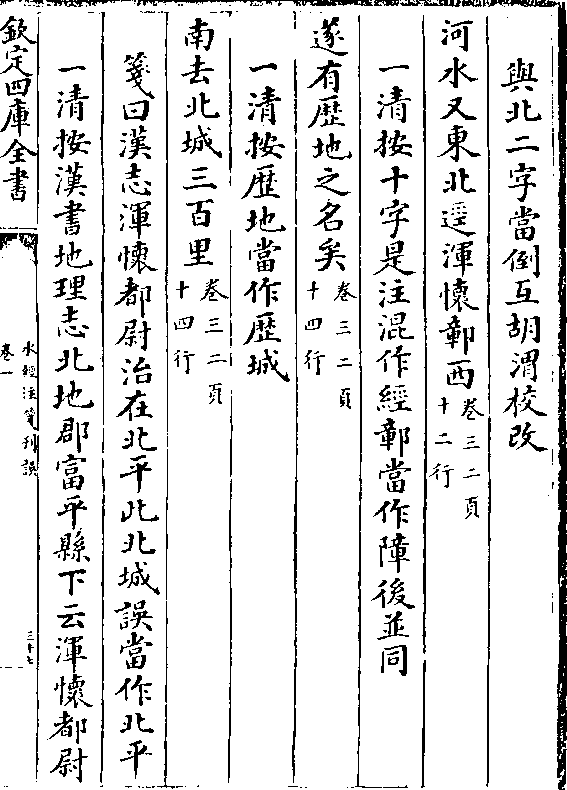 與北二字當倒互胡渭校改
河水又東北逕渾懷鄣西卷三二頁十二行
一清按十字是注混作經鄣當作障後並同
遂有歴地之名矣卷三二頁十四行
一清按歴地當作歴城
南去北城三百里卷三二頁十四行
箋曰漢志渾懷都尉治在北平此北城誤當作北平
一清按漢書地理志北地郡富平縣下云渾懷都尉
欽定四庫全書
水經注箋刊誤
卷一
三十七